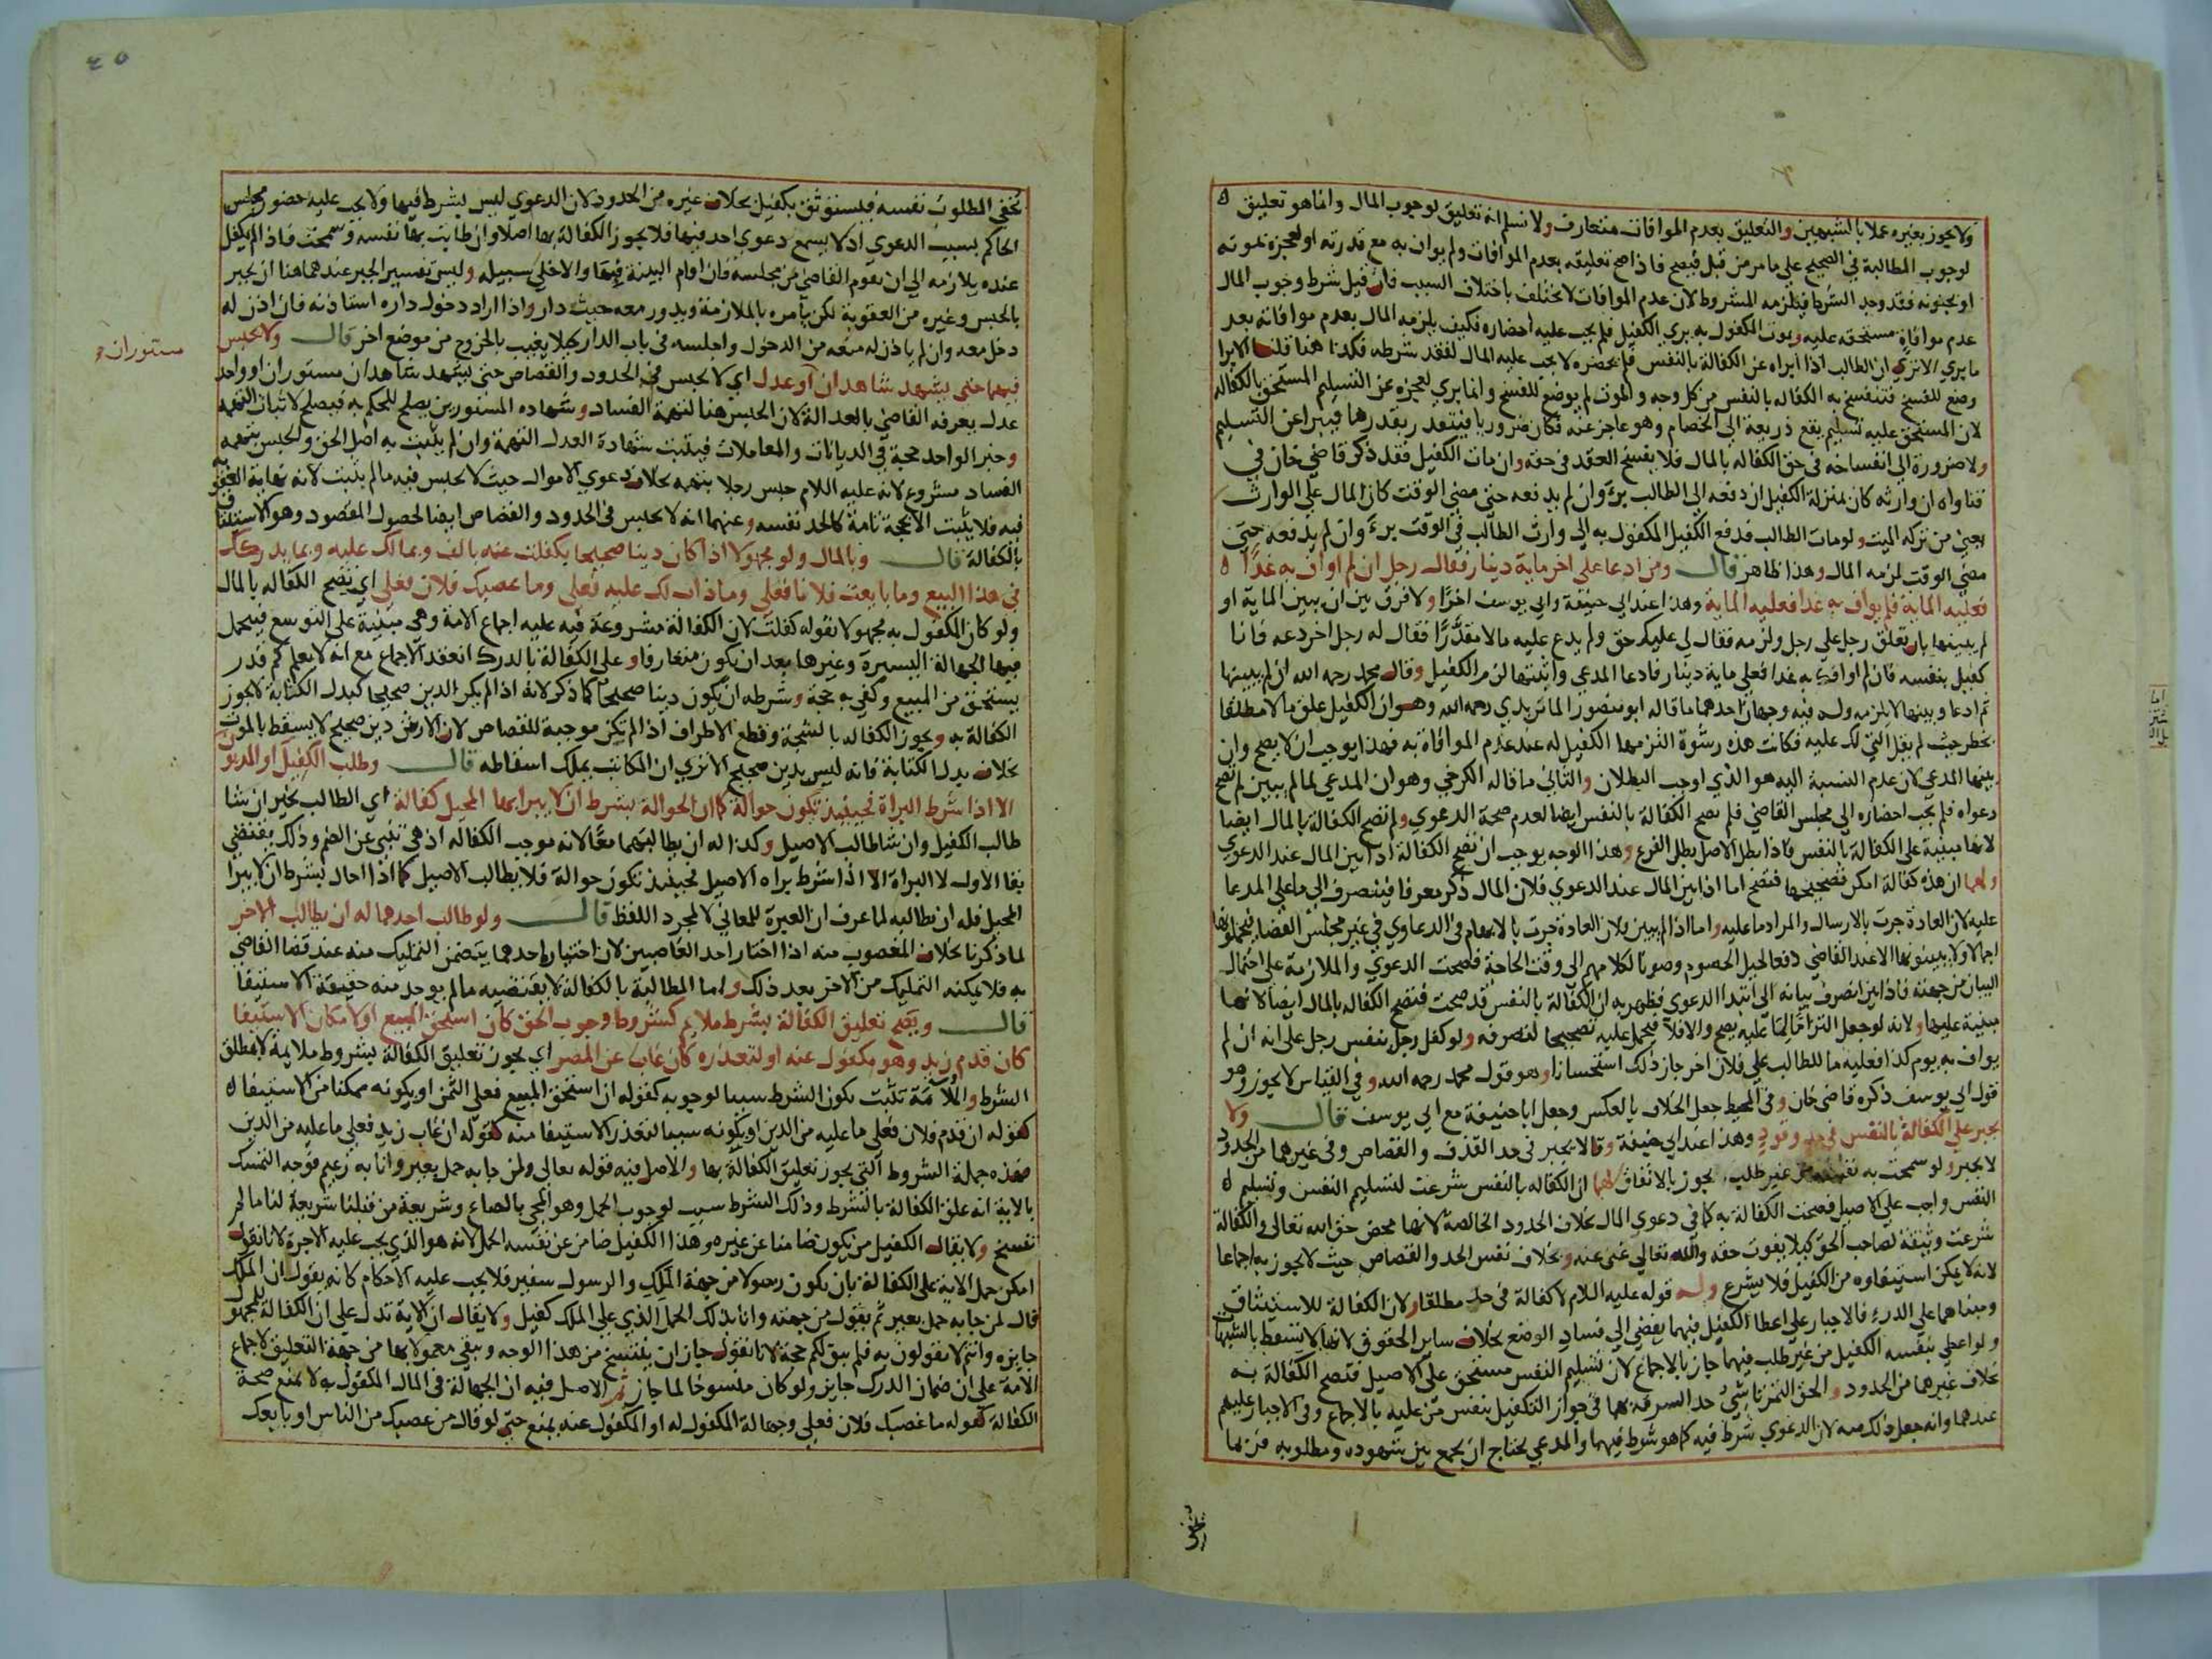 ولا يجوز بغيره عملا بالشبهين والتعليق بعدم الموافات متعارف ولا نسلم انه تعليق لوجوب المال وانما هو تعليق
لوجوب المطالبة في الصحيح على ما مر من قبل فيصح فاذا صح تعليقه بعدم الموافات ولم يواف به مع قدرته او لعجزه بموته
او بجنونه فقد وجد الشرط فيلزمه المشروط لان عدم الموافات لا يختلف باختلاف السبب فان قيل شرط وجوب المال
عدم موافاة مستحقه عليه وبموت المكفول به يبرى الكفيل فلم يجب عليه احضاره فكيف يلزمه المال بعدم موافاته بعد
ما يبرى الا ترى ان الطالب اذا ابراه عن الكفالة بالنفس فلم يحضره لا يجب عليه المال لفقد شرطه فكذا هنا قلنا الابرا
وضع للفسخ فتنفسخ به الكفاله بالنفس من كل وجه والموت لم يوضع للفسخ وانما يبرى لعجزه عن التسليم المستحق بالكفاله
لان المستحق عليه تسليم يقع ذريعة الى الخصام وهو عاجز عنه فكان ضروريا فيتقدر بقدرها فيبرا عن التسليم
ولا ضرورة الى انفساخه في حق الكفاله بالمال فلا يفسخ العقد في حقه وان مات الكفيل فقد ذكر قاضي خان في
فتاواه ان وارثه كان بمنزلة الكفيل ان دفعه الى الطالب برئ وان لم يدفعه حتى مضى الوقت كان المال على الوارث
يعني من تركه الميت ولو مات الطالب فدفع الكفيل المكفول به الى وارث الطالب في الوقت برئ وان لم يدفعه حتى
مضى الوقت لزمه المال وهذا ظاهر قال ومن ادعا على اخر ماية دينار فقال رجل ان لم اواف به غدا
فعليه الماية فلم يواف به غدا فعليه الماية وهذا عند ابي حنيفة وابي يوسف اخرا ولا فرق بين ان يبين الماية او
لم يبينها بان تعلق رجل على رجل ولزمه فقال لي عليك حق ولم يدع عليه مالا مقدرا فقال له رجل اخر دعه فانا
كفيل بنفسه فان لم اوافك به غدا فعلي ماية دينار فادعا المدعي واثبتها لزم الكفيل وقال محمد رحمه الله ان لم يبينها
ثم ادعا وبينها لا يلزمه وله فيه وجهان احدهما ما قاله ابو منصور الماتريدي رحمه الله وهو ان الكفيل علق مالا مطلقا
بخطر حيث لم يقل التي لك عليه فكانت هذه رشوة التزمها الكفيل له عند عدم الموافاة به فهذا يوجب ان لا يصح وان
بينها المدعي لان عدم النسبة اليه هو الذي اوجب البطلان والثاني ما قاله الكرخي وهو ان المدعي لما لم يبين لم تصح
دعواه فلم يجب احضاره الى مجلس القاضي فلم تصح الكفالة بالنفس ايضا لعدم صحة الدعوى ولم تصح الكفالة بالمال ايضا
لانها مبنية على الكفالة بالنفس فاذا بطل الاصل بطل الفرع وهذا الوجه يوجب ان تصح الكفالة اذا بين المال عند الدعوي
ولهما ان هذه كفالة امكن تصحيحها فتصح اما اذا بين المال عند الدعوي فلان المال ذكر معرفا فينصرف الى ما على المدعا
عليه لان العادة جرت بالارسال والمراد ما عليه واما اذا لم يبين فلان العادة جرت بالابهام في الدعاوي في غير مجلس القضا فيحملونها
اجمالا ولا يبينونها الا عند القاضي دفعا لحيل الخصوم وصونا لكلامهم الى وقت الحاجة فصحت الدعوي والملازمة على احتمال
البيان من جهته فاذا بين انصرف بيانه الى ابتدا الدعوي فظهر به ان الكفالة بالنفس قد صحت فتصح الكفاله بالمال ايضا لانها
مبنية عليها ولانه لو جعل التزاما لما عليه يصح والا فلا فيحمل عليه تصحيحا لتصرفه ولو كفل رجل بنفس رجل على انه ان لم
يواف به يوم كذا فعليه ما للطالب على فلان اخر جاز ذلك استحسانا وهو قول محمد رحمه الله وفي القياس لا يجوز وهو
قول ابي يوسف ذكره قاضي خان وفي المحيط جعل الخلاف بالعكس وجعل ابا حنيفة مع ابي يوسف قال ولا
يجبر على الكفالة بالنفس في حد وقود وهذا عند ابي حنيفة وقالا يجبر في حد القذف والقصاص وفي غيرهما من الحدود
لا يجبر ولو سمحت به نفسه من غير طلب يجوز بالاتفاق لهما ان الكفاله بالنفس شرعت لتسليم النفس وتسليم
النفس واجب على الاصيل فصحت الكفالة به كما في دعوي المال بخلاف الحدود الخالصة لانها محض حق الله تعالى والكفالة
شرعت وثيقة لصاحب الحق كيلا يفوت حقه والله تعالى غني عنه وبخلاف نفس الحد والقصاص حيث لا يجوز به اجماعا
لانه لا يمكن استيفاوه من الكفيل فلا يشرع وله قوله عليه اللام لا كفالة في حد مطلقا ولان الكفالة للاستيثاق
ومبناهما على الدرء فالاجبار على اعطا الكفيل فيهما يفضي الى فساد الوضع بخلاف ساير الحقوق لانها لا تسقط بالشبهات
ولو اعطى بنفسه الكفيل من غير طلب فيهما جاز بالاجماع لان تسليم النفس مستحق على الاصيل فتصح الكفالة به
بخلاف غيرهما من الحدود والحق التمرتاشي حد السرقة بهما في جواز التكفيل بنفس من عليه بالاجماع وفي الاجبار عليهم
عندهما وانه جعل ذلك منه لان الدعوي شرط فيه كما هو شرط فيهما والمدعي يحتاج ان يجمع بين شهوده ومطلوبه فربما
يخفي
٤٥
يخفي المطلوب نفسه فيستوثق بكفيل بخلاف غيره من الحدود لان الدعوي ليس بشرط فيها ولا يجب عليه حضور مجلس
الحاكم بسبب الدعوي اذ لا يسمع دعوي احد فيها فلا يجوز الكفالة بها اصلا وان طابت بها نفسه وسمحت فاذا لم يكفل
عنده يلازمه الى ان يقوم القاضي من مجلسه فان اقام البينة فبها والا خلى سبيله وليس تفسير الجبر عندهما هنا ان يجبر
بالحبس وغيره من العقوبة لكن يامره بالملازمة ويدور معه حيث دار واذا اراد دخول داره استاذنه فان اذن له
دخل معه وان لم ياذن له منعه من الدخول واجلسه في باب الدار كيلا يغيب بالخروج من موضع اخر قال ولا يحبس
فيهما حتى يشهد شاهدان او عدل اي لا يحبس في الحدود والقصاص حتى يشهد شاهدان مستوران او واحد
مستوران
عدل يعرفه القاضي بالعدالة لان الحبس هنا لتهمة الفساد وشهاده المستورين يصلح للحكم به فيصلح لاثبات التهمه
وخبر الواحد حجة في الديانات والمعاملات فيثبت بشهادة العدل التهمة وان لم يثبت به اصل الحق والحبس بتهمه
الفساد مشروع لانه عليه اللام حبس رجلا بتهمه بخلاف دعوي الاموال حيث لا يحبس فيه ما لم يثبت لانه نهاية العقوبه
فيه فلا يثبت الا بحجة تامة كالحد نفسه وعنهما انه لا يحبس في الحدود والقصاص ايضا لحصول المقصود وهو الاستيثاق
بالكفالة قال وبالمال ولو مجهولا اذا كان دينا صحيحا بكفلت عنه بالف وبما لك عليه وبما يدركك
في هذا البيع وما بايعت فلانا فعلي وما ذاب لك عليه فعلي وما غصبك فلان فعلي اي تصح الكفاله بالمال
ولو كان المكفول به مجهولا بقوله كفلت لان الكفالة مشروعة فيه عليه اجماع الامة وهي مبنية على التوسع فيتحمل
فيها الجهالة اليسيرة وغيرها بعد ان يكون متعارفا وعلى الكفالة بالدرك انعقد الاجماع مع انه لا يعلم كم قدر
يستحق من المبيع وكفى به حجة وشرطه ان يكون دينا صحيحا كما ذكر لانه اذا لم يكن الدين صحيحا كبدل الكتابة لا يجوز
الكفالة به ويجوز الكفاله بالشجة وقطع الاطراف اذا لم تكن موجبة للقصاص لان الارش دين صحيح لا يسقط بالموت
بخلاف بدل الكتابة فانه ليس بدين صحيح الا ترى ان المكاتب يملك اسقاطه قال وطلب الكفيل او المديون
الا اذا شرط البراة فحينيذ تكون حوالة كما ان الحوالة بشرط ان لا يبرا بها المحيل كفالة اي الطالب يخير ان شا
طالب الكفيل وان شا طالب الاصيل وكذا له ان يطالبهما معا لانه موجب الكفاله اذ هي تنبي عن الضم وذلك يقتضي
بقا الاول لا البراة الا اذا شرط براه الاصيل فحينيذ تكون حوالة فلا يطالب الاصيل كما اذا احال بشرط ان لا يبرا
المحيل فله ان يطالبه لما عرف ان العبرة للمعاني لا لمجرد اللفظ قال ولو طالب احدهما له ان يطالب الاخر
لما ذكرنا بخلاف المغصوب منه اذا اختار احد الغاصبين لان اختياره احدهما يتضمن التمليك منه عند قضا القاضي
به فلا يمكنه التمليك من الاخر بعد ذلك واما المطالبة بالكفالة لا يقتضيه ما لم يوجد منه حقيقة الاستيفا
قال ويصح تعليق الكفالة بشرط ملايم كشرط وجوب الحق كان استحق المبيع او لامكان الاستيفا
كان قدم زيد وهو مكفول عنه او لتعذره كان غاب عن المصر اي يجوز تعليق الكفالة بشروط ملايمة لا بمطلق
الشرط والملايمة تثبت بكون الشرط سببا لوجوبه كقوله ان استحق المبيع فعلي الثمن او بكونه ممكنا من الاستيفا
كقوله ان قدم فلان فعلي ما عليه من الدين او بكونه سببا لتعذر الاستيفا منه كقوله ان غاب زيد فعلي ما عليه من الدين
فهذه جملة الشروط التي يجوز تعليق الكفالة بها والاصل فيه قوله تعالى ولمن جا به حمل بعير وانا به زعيم فوجه التمسك
بالاية انه علق الكفالة بالشرط وذلك الشرط سبب لوجوب الحمل وهو المجي بالصاع وشريعة من قبلنا شريعة لنا ما لم
تفسخ ولا يقال الكفيل من يكون ضامنا عن غيره وهذا الكفيل ضامن عن نفسه الحمل لانه هو الذي يجب عليه الاجرة لانا نقول
امكن حمل الاية على الكفالة بان يكون رسولا من جهة الملك والرسول سفير فلا يجب عليه الاحكام كانه يقول ان الملك
قال لمن جا به حمل بعير ثم يقول من جهته وانا بذلك الحمل الذي على الملك كفيل ولا يقال ان الاية تدل على ان الكفالة للمجهول
جايزه وانتم لا تقولون به فلم يبق لكم حجة لانا نقول جاز ان ينتسخ من هذا الوجه وبقي معمولا بها من جهة التعليق لاجماع
الامة على ان ضمان الدرك جايز ولو كان منسوخا لما جاز ثم الاصل فيه ان الجهالة في المال المكفول به لا يمنع صحة
الكفالة كقوله ما غصبك فلان فعلي وجهالة المكفول له او المكفول عنه يمنع حتى لو قال من غصبك من الناس او بايعك